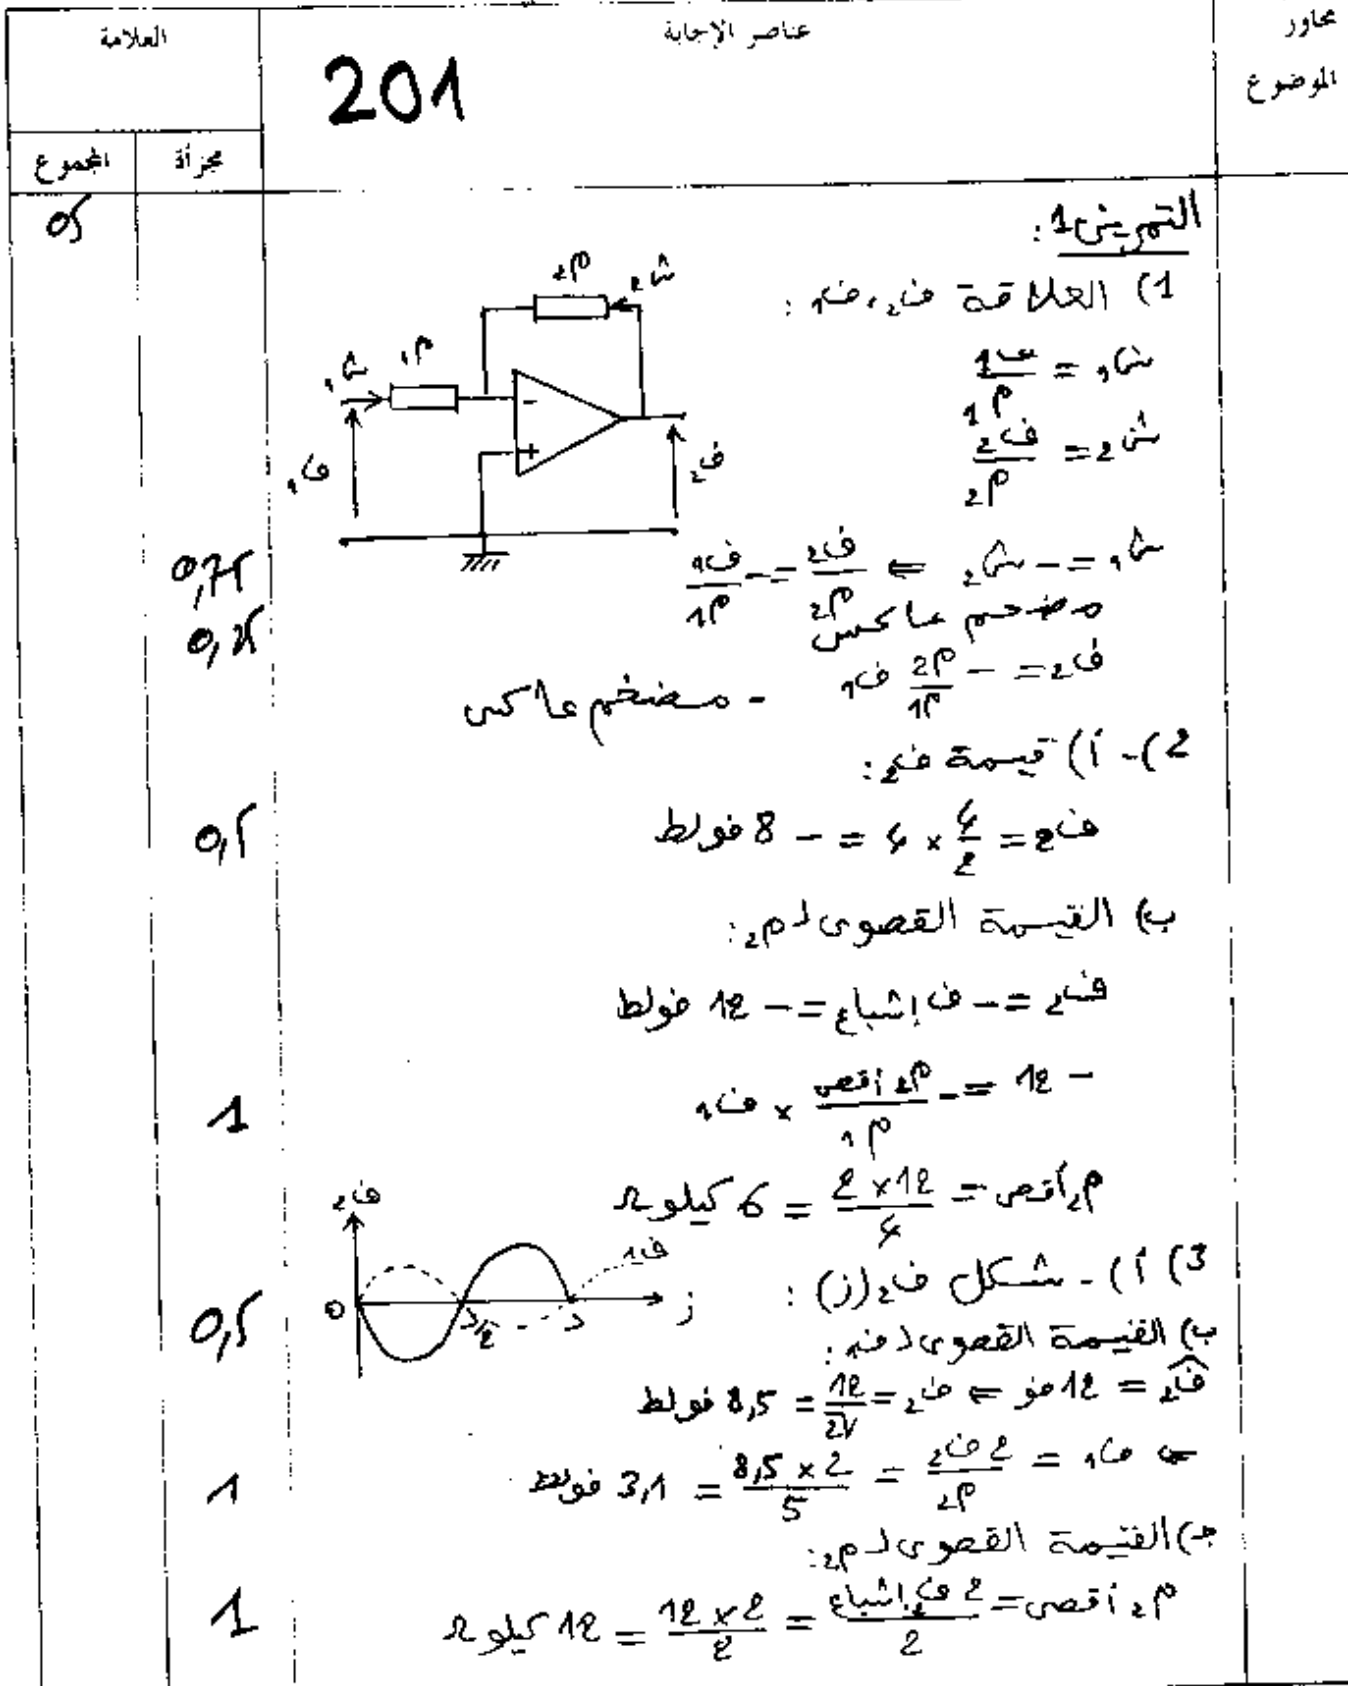 محاور الموضوع
عناصر الإجابة
العلامة
201
مجزأة
المجموع
05
التمرين 1:
1) العلاقة ف2، ف1:
م2 ش2
ش1 م1
- +
ف1 ف2
ش1 = ف1 / م1
ش2 = ف2 / م2
ش1 = - ش2 ⇐ ف2 / م2 = - ف1 / م1
0,75
مضخم عاكس
0,25
ف2 = - م2 / م1 ف1 - مضخم عاكس
2) - أ) قيمة ف2:
ف2 = 4 / 2 × 4 = - 8 فولط
0,5
ب) القيمة القصوى لـ م2:
ف2 = - ف إشباع = - 12 فولط
- 12 = - م2 أقصى / م1 × ف1
1
م2 أقصى = 12 × 2 / 4 = 6 كيلو Ω
3) أ) - شكل ف2 (ز):
0,5
ف2
ف1
0 د/2 د ز
ب) القيمة القصوى لـ ف1:
ف2 = 12 فو ⇐ ف2 = 12 / √2 = 8,5 فولط
⇐ ف1 = 2 ف2 / م2 = 2 × 8,5 / 5 = 3,1 فولط
1
جـ) القيمة القصوى لـ م2:
م2 أقصى = 2 ف2 إشباع / 2 = 2 × 12 / 2 = 12 كيلو Ω
1